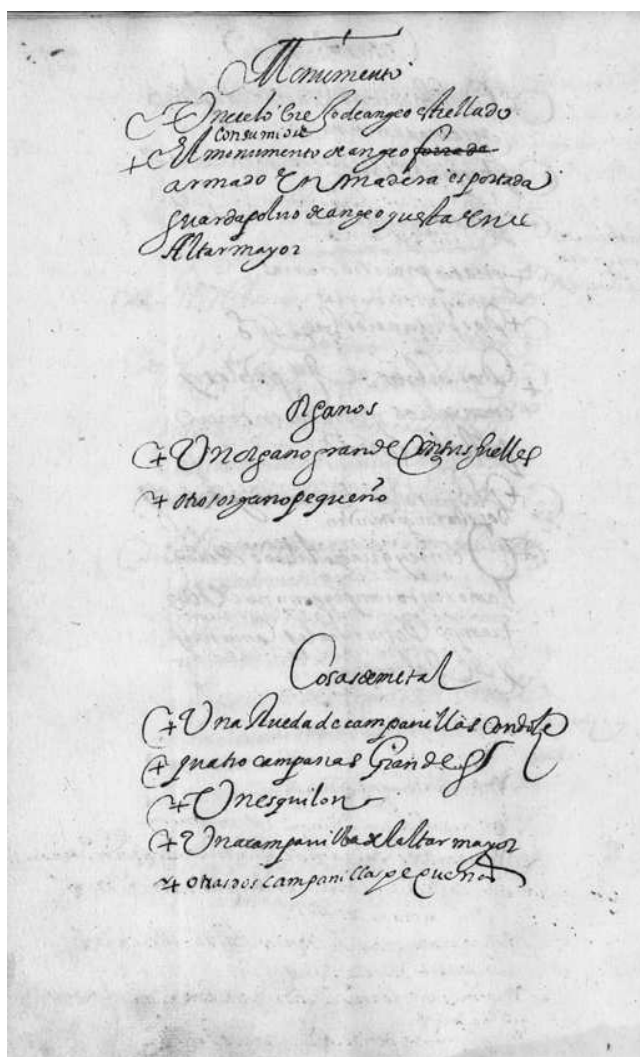 Monumento
Un cielo biejo de angeo estrellado
Consumiose
+ El monumento de angeo forrada
armado En madera es portada
guardapoluo de angeo questa En el
Altar mayor
organos
+ Un organo grande Con tres fuelles
+ otro organo pequeño
Cosas de metal
+ Una Rueda de campanillas Con doze
+ quatro campanas Grandes
+ Un esquilon
+ Una campanilla del altar mayor
+ otras dos campanillas pequeñas